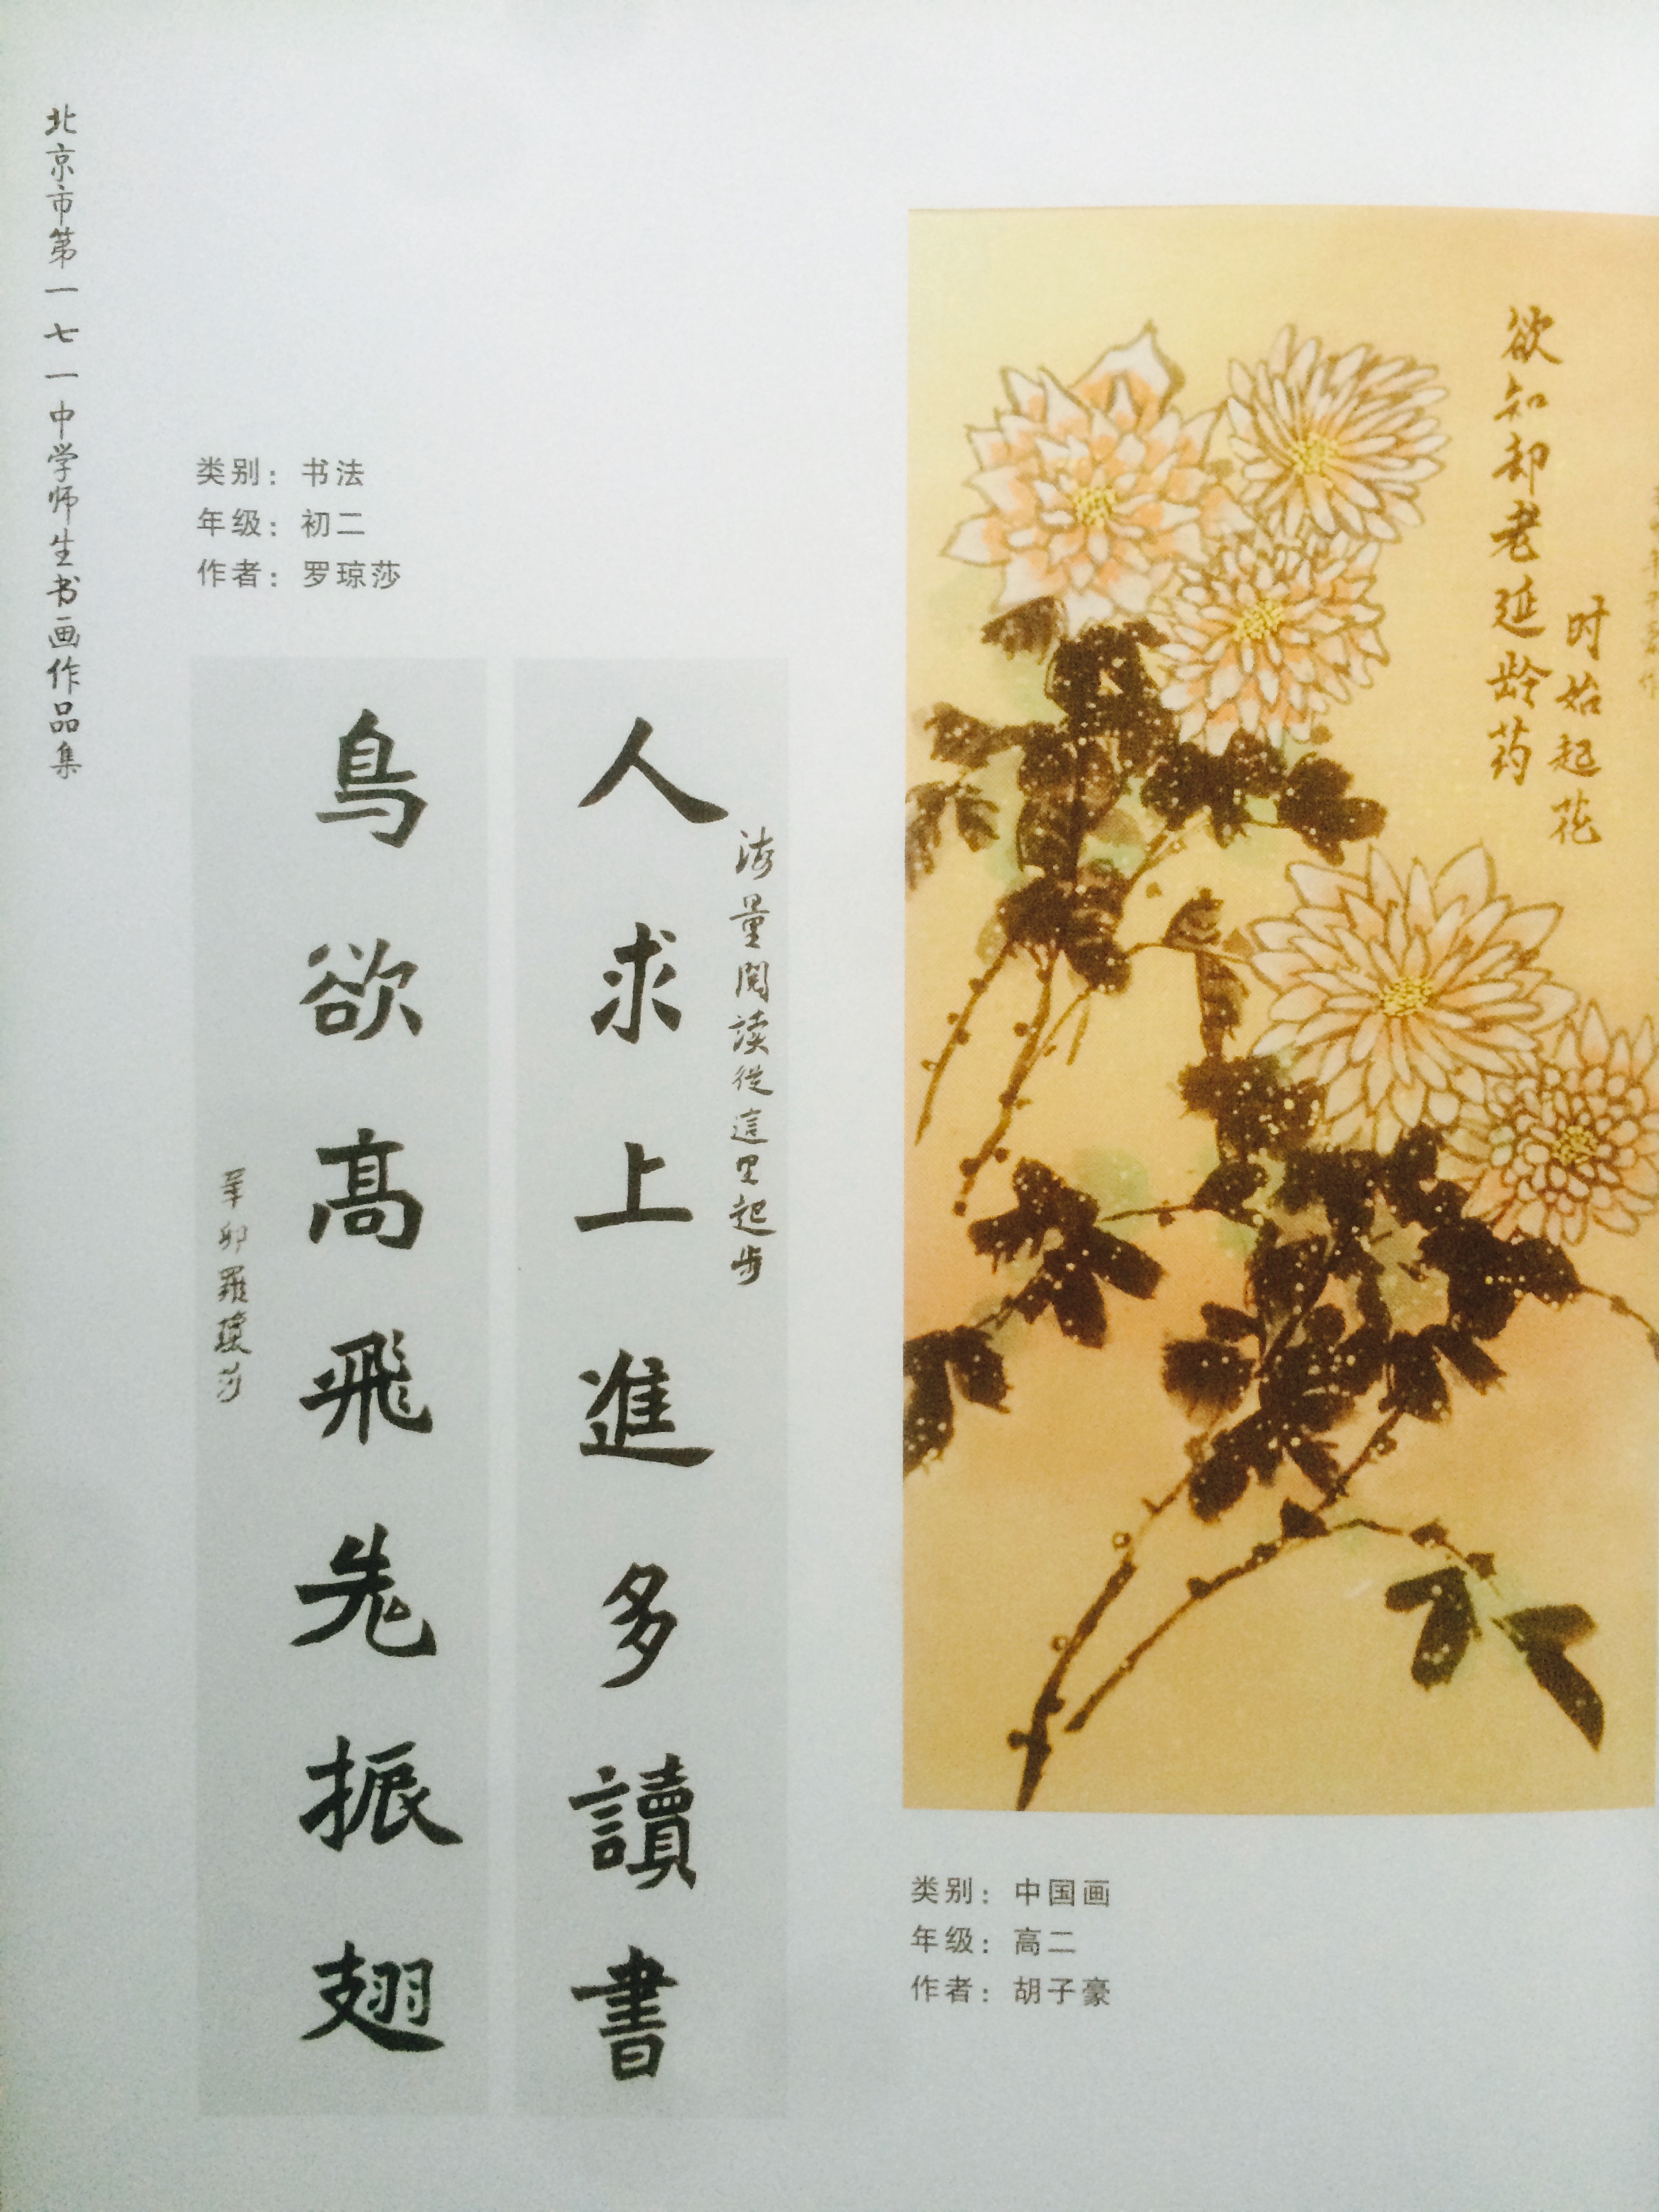 北京市第一七一中学师生书画作品集
类别：书法
年级：初二
作者：罗琼莎
海量阅读從這里起步
人求上進多讀書
鳥欲高飛先振翅
辛卯羅瓊莎
欲知却老延龄药
时始起花
类别：中国画
年级：高二
作者：胡子豪